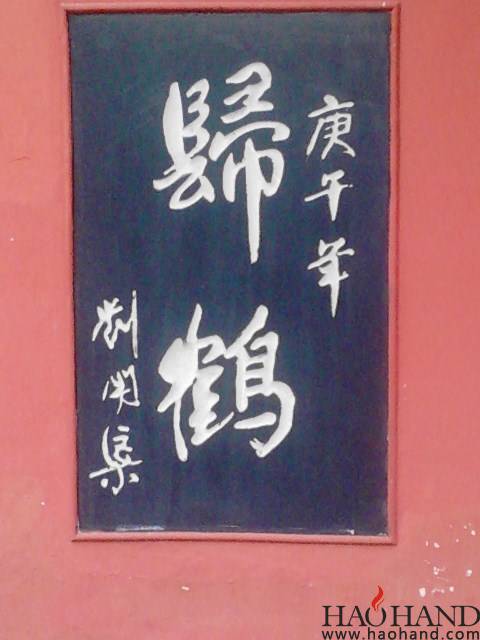 庚午年
歸鶴
HAOHAND
www.haohand.com